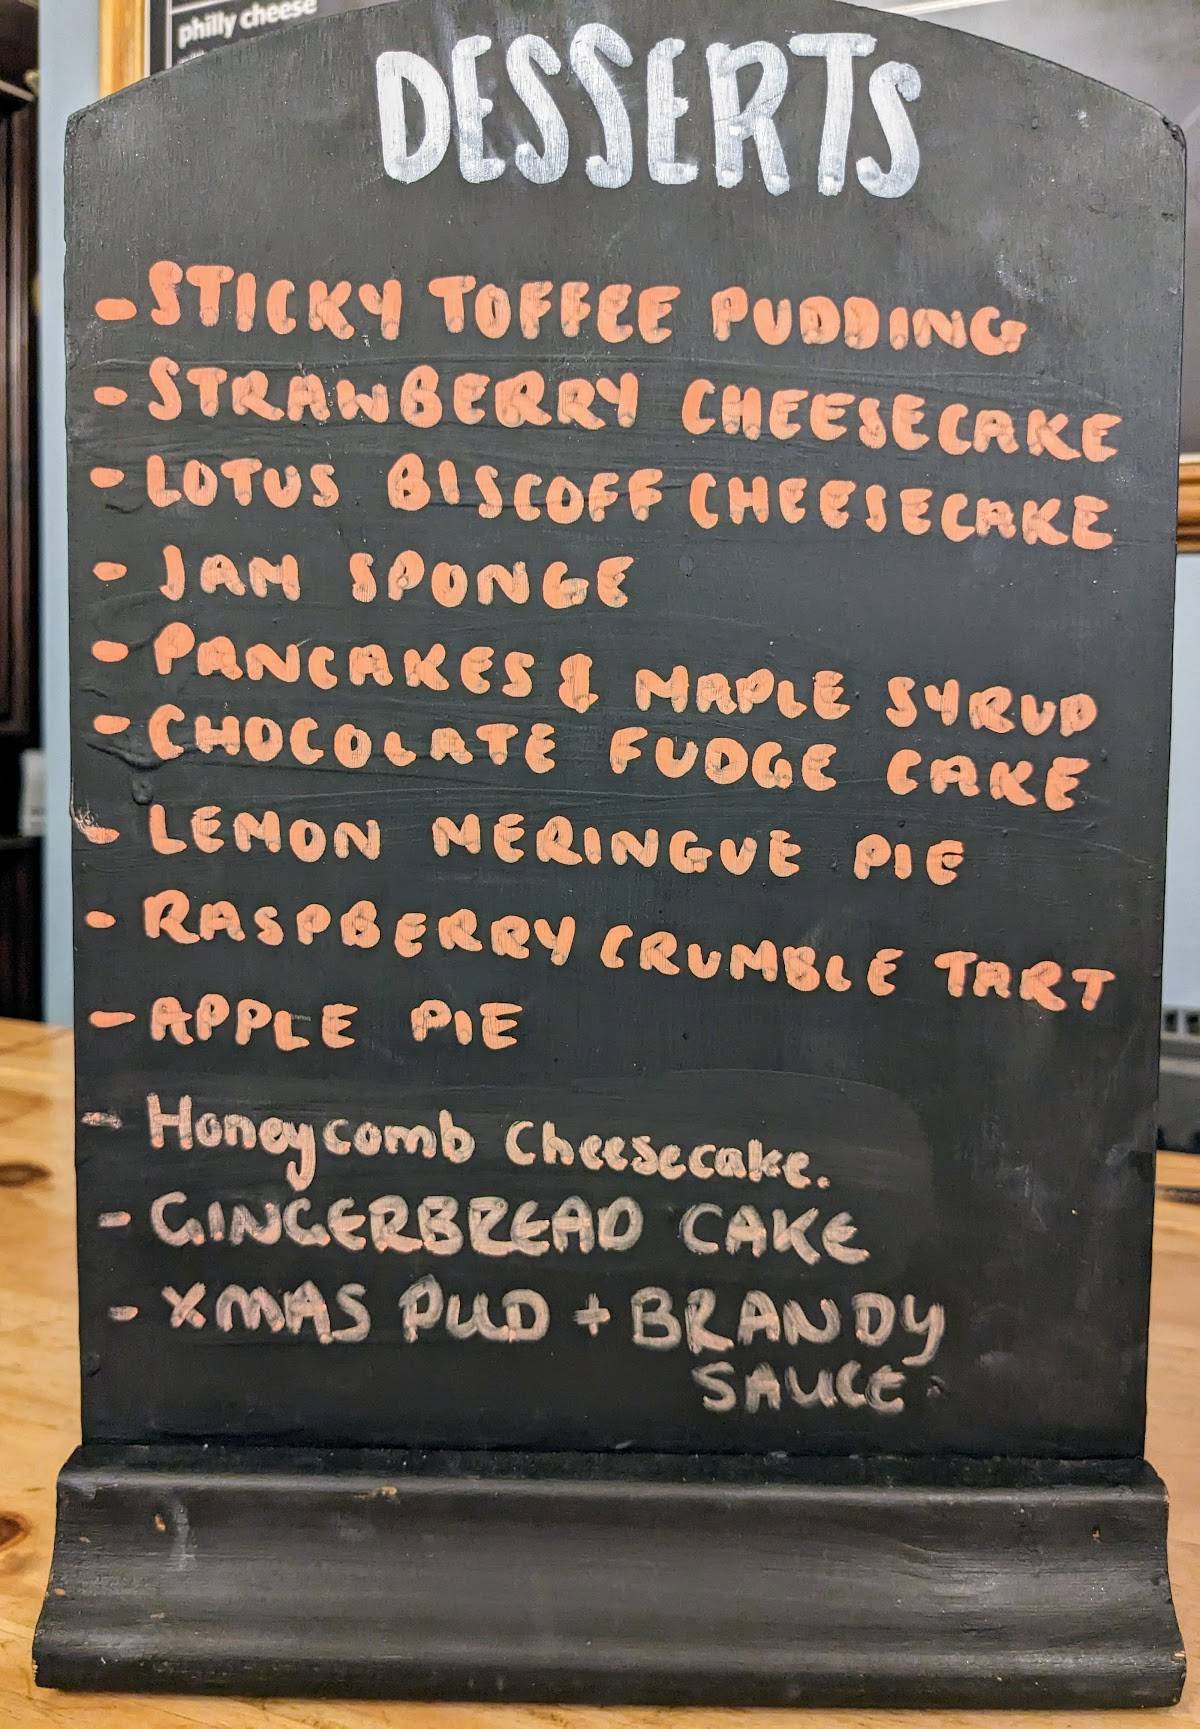 philly cheese
DESSERTS
- STICKY TOFFEE PUDDING
- STRAWBERRY CHEESECAKE
- LOTUS BISCOFF CHEESECAKE
- JAM SPONGE
- PANCAKES & MAPLE SYRUP
- CHOCOLATE FUDGE CAKE
- LEMON MERINGUE PIE
- RASPBERRY CRUMBLE TART
- APPLE PIE
- Honeycomb Cheesecake.
- GINGERBREAD CAKE
- XMAS PUD + BRANDY
SAUCE